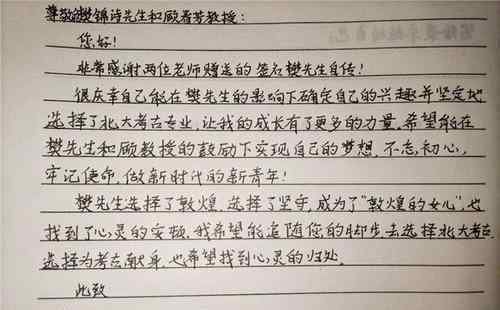 尊敬的樊锦诗先生和顾春芳教授：
您好！
非常感谢两位老师赠送的签名樊先生自传！
很庆幸自己能在樊先生的影响下确定自己的兴趣并坚定地
选择了北大考古专业，让我的成长有了更多的力量。希望能在
樊先生和顾教授的鼓励下实现自己的梦想，不忘初心，
牢记使命，做新时代的新青年！
樊先生选择了敦煌，选择了坚守，成为了“敦煌的女儿”，也
找到了心灵的安顿。我希望能追随您的脚步去选择北大考古
选择为考古献身，也希望找到心灵的归处。
此致